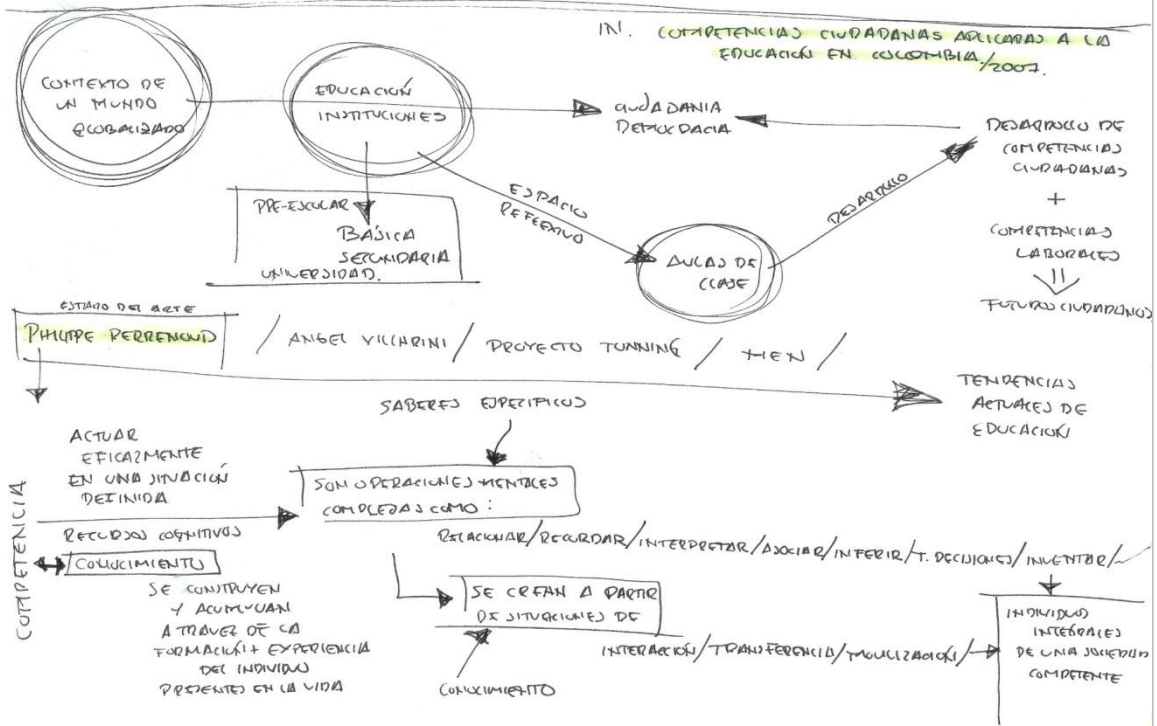 IN. COMPETENCIAS CIUDADANAS APLICADAS A LA
EDUCACIÓN EN COLOMBIA./2007.
CONTEXTO DE
UN MUNDO
GLOBALIZADO
EDUCACIÓN
INSTITUCIONES
CIUDADANIA
DEMOCRACIA
DESARROLLO DE
COMPETENCIAS
CIUDADANAS
+
COMPETENCIAS
LABORALES
FUTUROS CIUDADANOS
PRE-ESCOLAR
BÁSICA
SECUNDARIA
UNIVERSIDAD.
ESPACIO
REFLEXIVO
AULAS DE
CLASE
DESARROLLO
ESTADO DEL ARTE
PHILIPPE PERRENOUD / ANGEL VILLARINI / PROYECTO TUNNING / MEN /
TENDENCIAS
ACTUALES DE
EDUCACIÓN
SABERES ESPECIFICOS
COMPETENCIA
ACTUAR
EFICAZMENTE
EN UNA SITUACIÓN
DEFINIDA
RECURSOS COGNITIVOS
CONOCIMIENTO
SE CONSTRUYEN
Y ACUMULAN
A TRAVEZ DE LA
FORMACIÓN + EXPERIENCIA
DEL INDIVIDUO
PRESENTES EN LA VIDA
SON OPERACIONES MENTALES
COMPLEJAS COMO:
RELACIONAR/RECORDAR/INTERPRETAR/ASOCIAR/INFERIR/T. DECISIONES/INVENTAR/
SE CREAN A PARTIR
DE SITUACIONES DE
INTERACCIÓN/TRANSFERENCIA/MOVILIZACIÓN/
CONOCIMIENTO
INDIVIDUOS
INTEGRALES
DE UNA SOCIEDAD
COMPETENTE